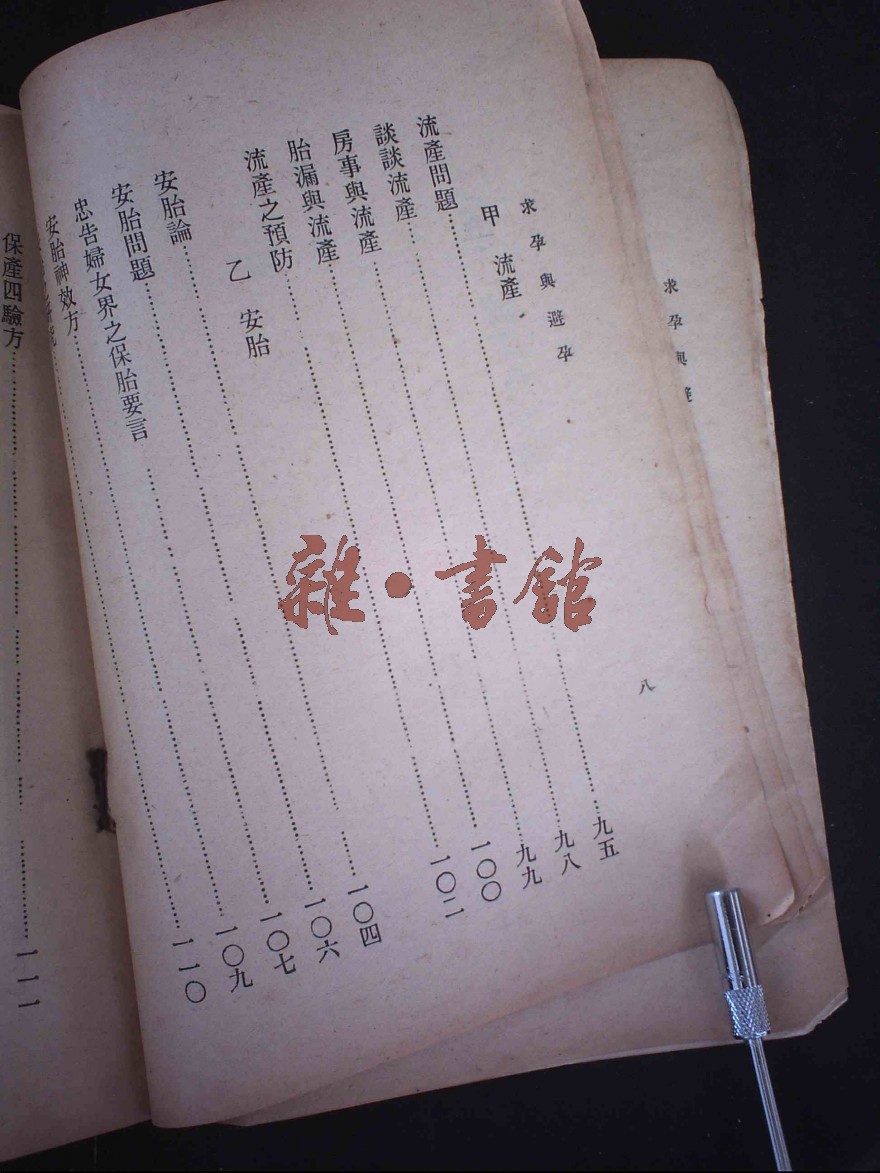 求孕與
求孕與避孕
八
甲 流產
流產問題……九五
談談流產……九八
房事與流產……九九
胎漏與流產……一〇〇
流產之預防……一〇二
乙 安胎
安胎論……一〇四
安胎問題……一〇六
忠告婦女界之保胎要言……一〇七
安胎神效方……一〇九
……一一〇
保產四驗方……一一一
雜·書館